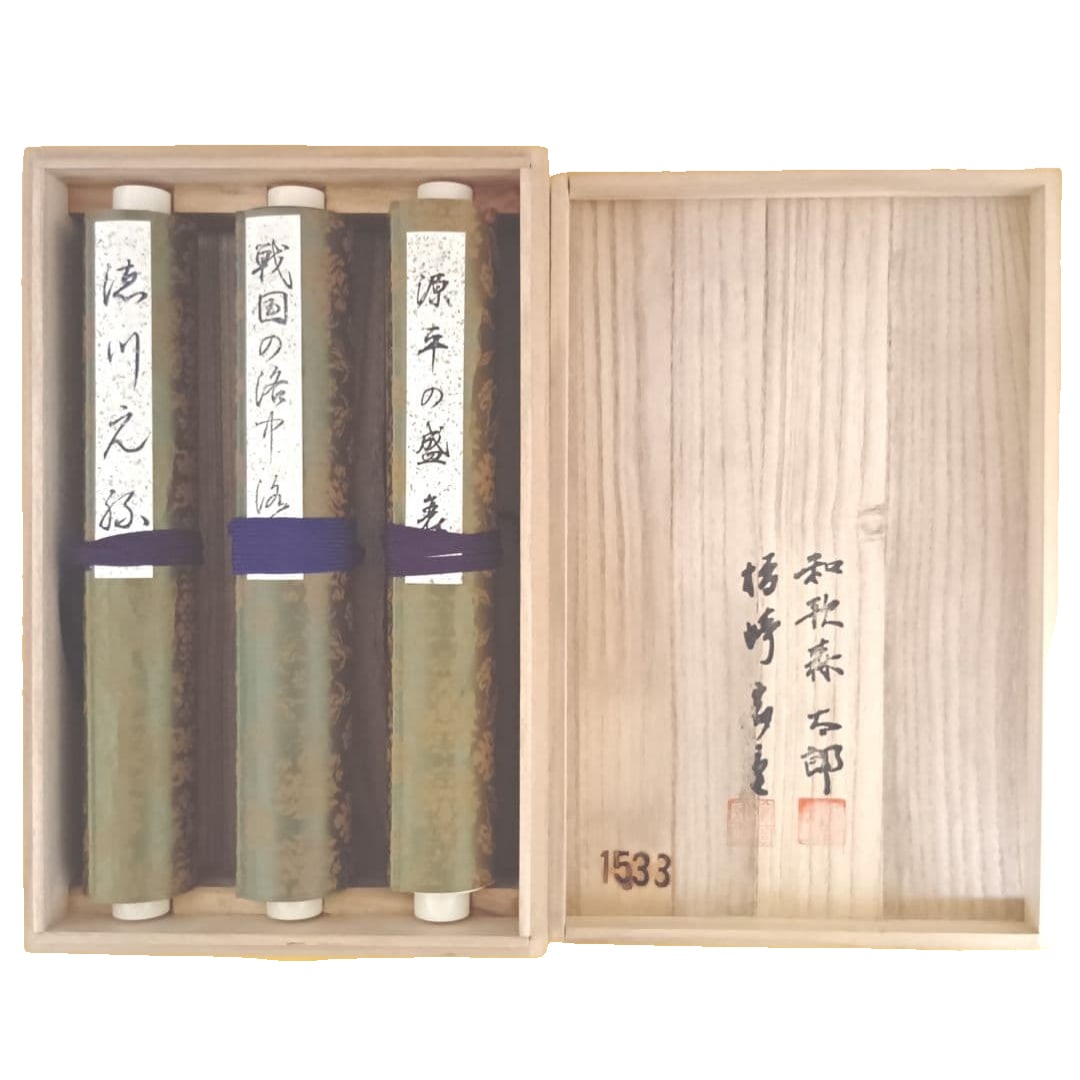 源平の盛衰
戦国の洛中洛
徳川元禄
和歌森太郎
楢崎宗重
1533